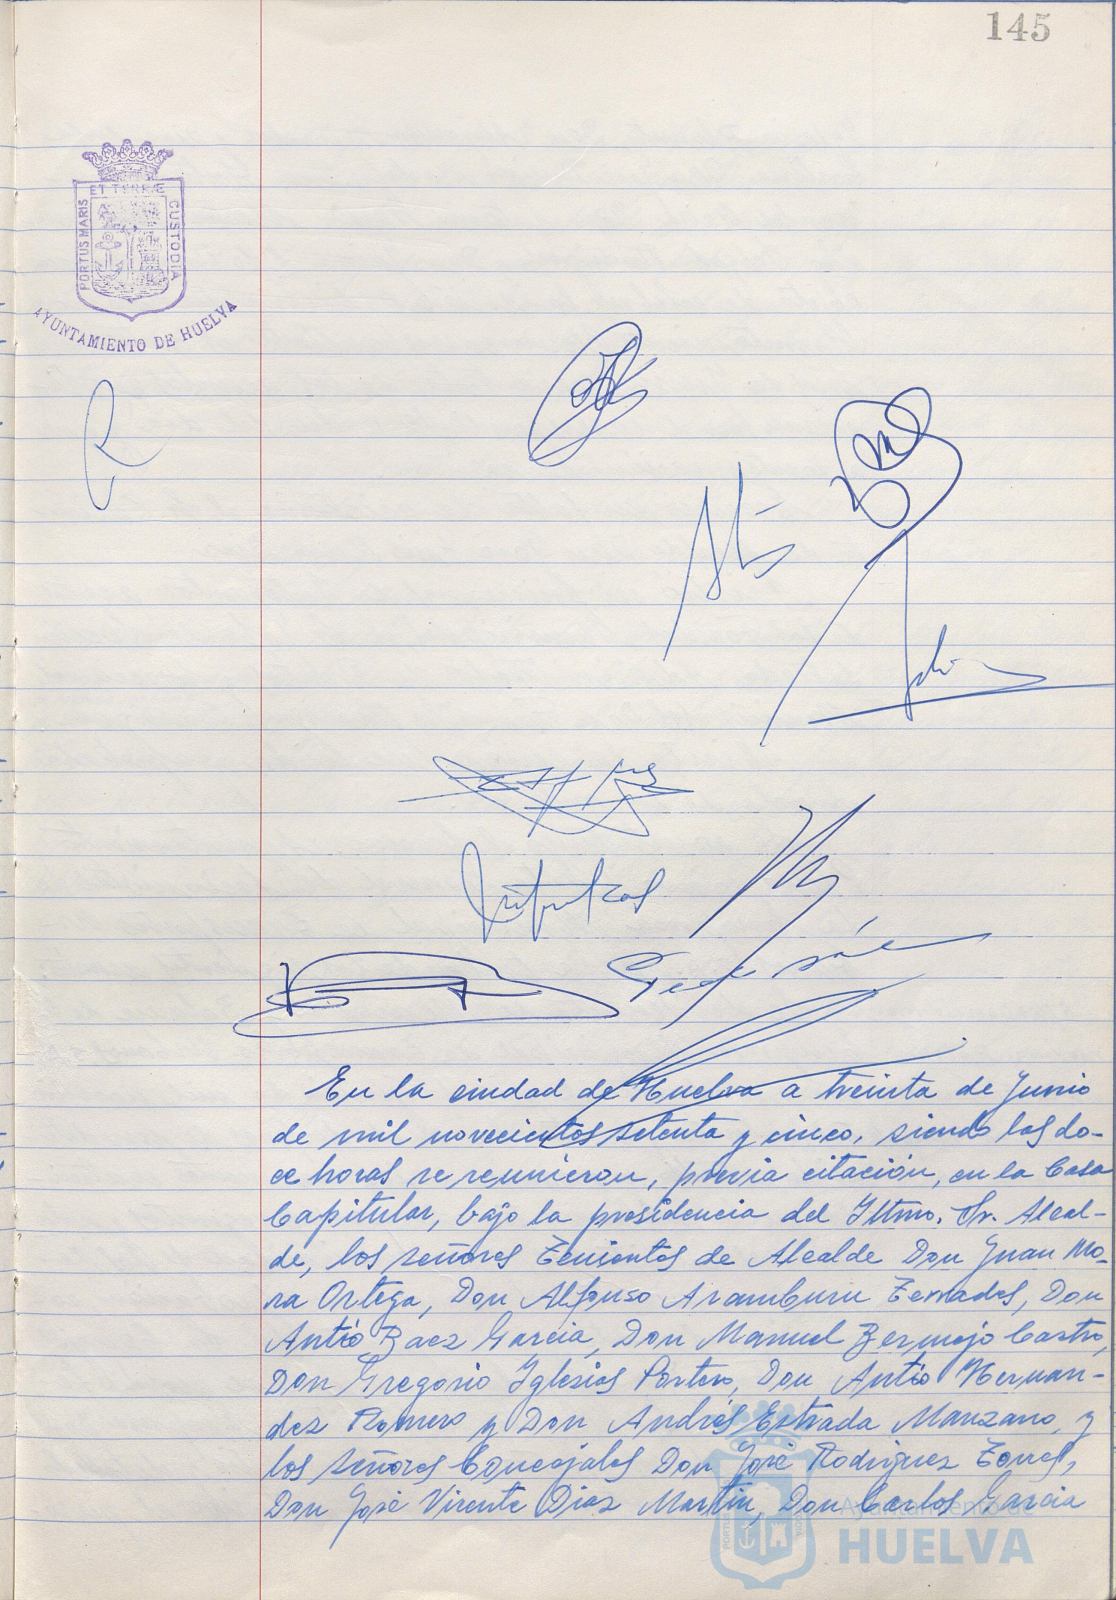 145
PORTUS MARIS ET TERRÆ CUSTODIA
AYUNTAMIENTO DE HUELVA
En la ciudad de Huelva a treinta de Junio
de mil novecientos setenta y cinco, siendo las do-
ce horas se reunieron, previa citación, en la Casa
Capitular, bajo la presidencia del Iltmo. Sr. Alcal-
de, los señores Tenientes de Alcalde Don Juan Mo-
ra Ortega, Don Alfonso Aramburu Terrades, Don
Antº Baez Garcia, Don Manuel Bermejo Castro,
Don Gregorio Iglesias Portero, Don Antº Hernan-
dez Romero y Don Andrés Estrada Manzano, y
los señores Concejales Don José Rodriguez Torres,
Don José Vicente Diaz Martin, Don Carlos Garcia
Ayuntamiento de
HUELVA